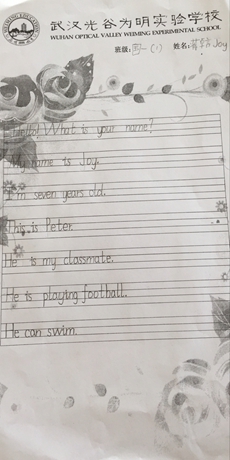 武汉光谷为明实验学校
WUHAN OPTICAL VALLEY WEIMING EXPERIMENTAL SCHOOL
班级: (1) 姓名: Joy
Hello! What is your name?
My name is Joy.
I'm seven years old.
This is Peter.
He is my classmate.
He is playing football.
He can swim.